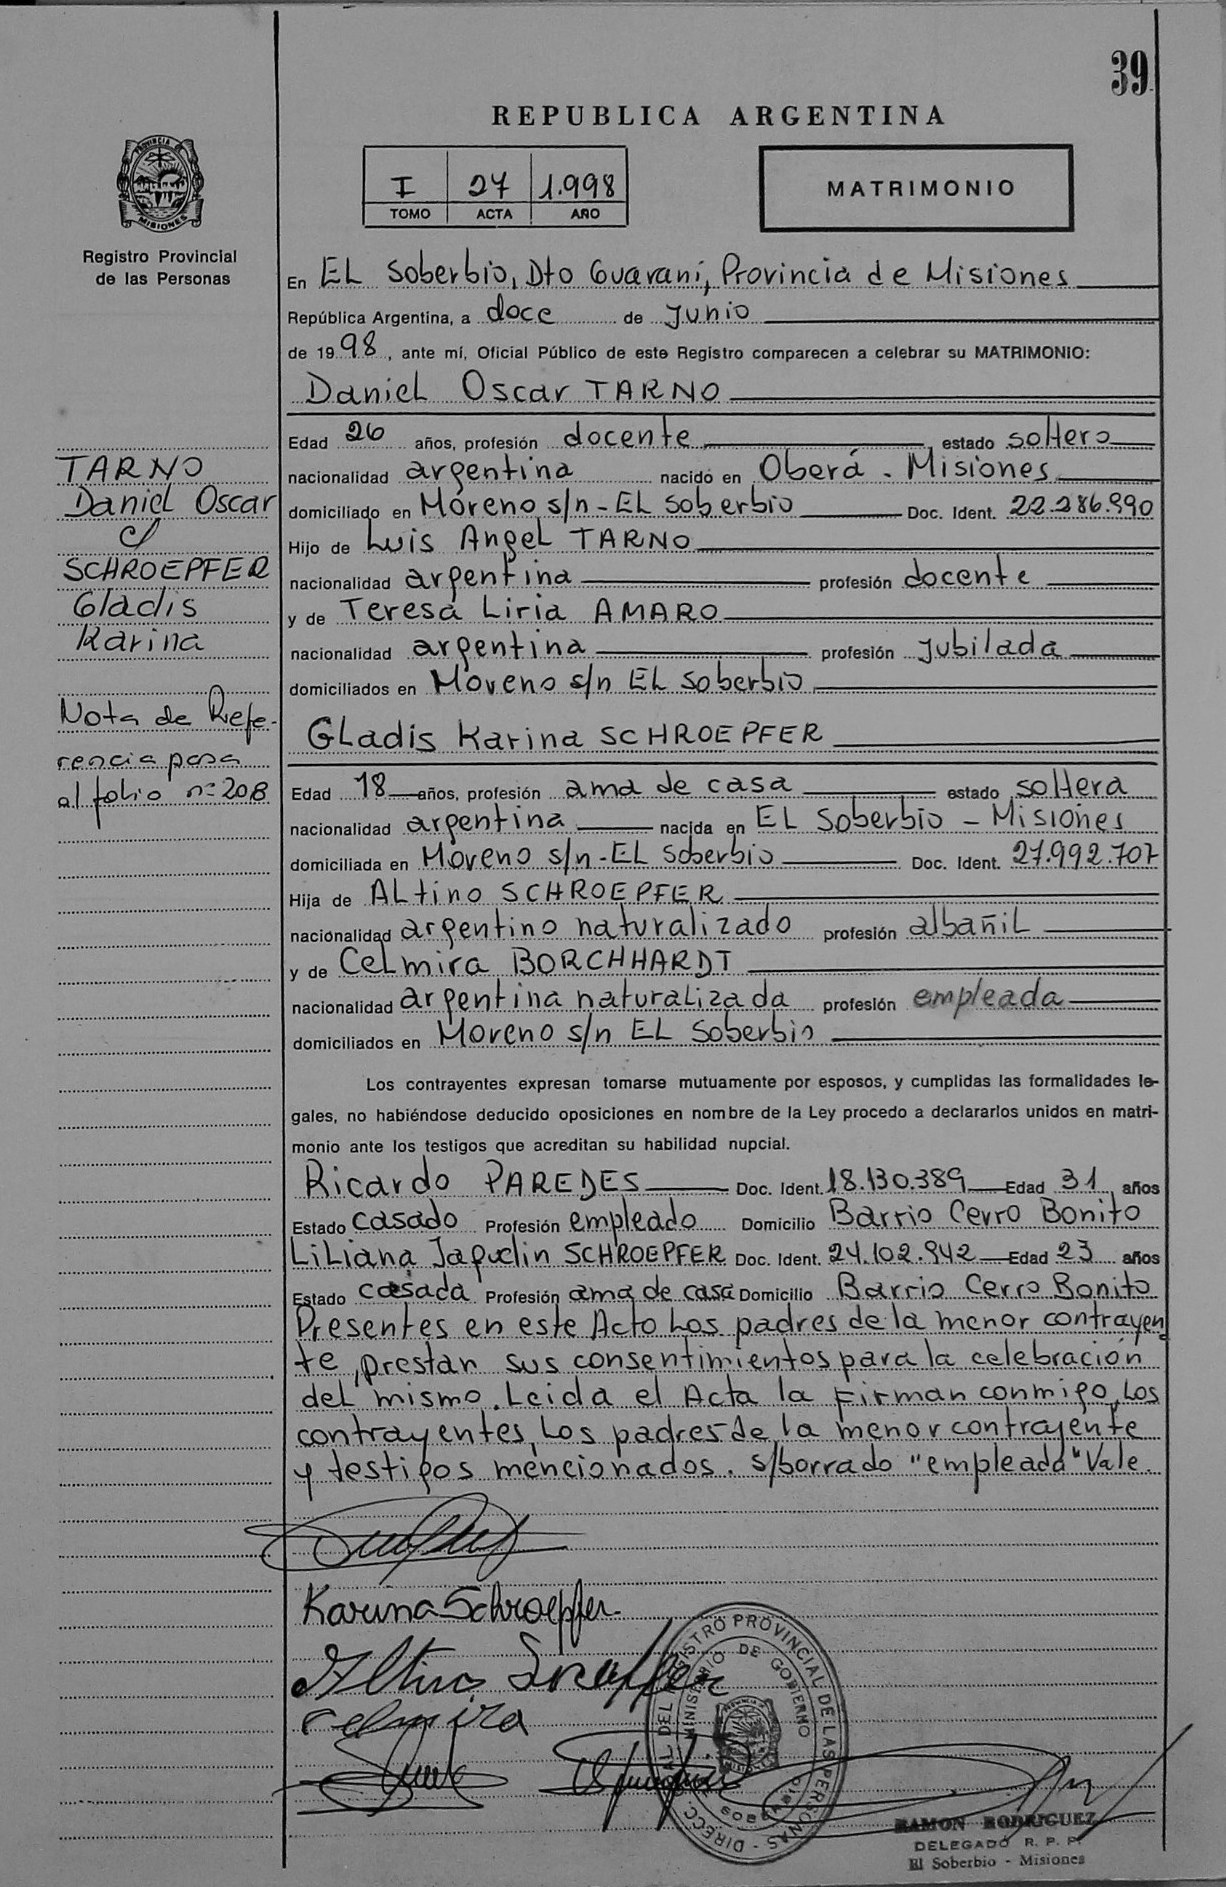 39
REPUBLICA ARGENTINA
PROVINCIA DE
MISIONES
Registro Provincial
de las Personas
I 27 1.998
TOMO ACTA AÑO
MATRIMONIO
En EL Soberbio, Dto Guaraní, Provincia de Misiones
República Argentina, a doce de Junio
de 1998, ante mí, Oficial Público de este Registro comparecen a celebrar su MATRIMONIO:
Daniel Oscar TARNO
Edad 26 años, profesión docente estado soltero
nacionalidad argentina nacido en Oberá - Misiones
domiciliado en Moreno s/n - EL Soberbio Doc. Ident. 22.286.990
Hijo de Luis Angel TARNO
nacionalidad argentina profesión docente
y de Teresa Liria AMARO
nacionalidad argentina profesión Jubilada
domiciliados en Moreno s/n EL Soberbio
TARNO
Daniel Oscar
c/
SCHROEPFER
Gladis
Karina
Nota de Refe-
rencia pasa
al folio nº 208
Gladis Karina SCHROEPFER
Edad 18 años, profesión ama de casa estado soltera
nacionalidad argentina nacida en EL Soberbio - Misiones
domiciliada en Moreno s/n - EL Soberbio Doc. Ident. 27.992.707
Hija de ALtino SCHROEPFER
nacionalidad argentino naturalizado profesión albañil
y de Celmira BORCHHARDT
nacionalidad argentina naturalizada profesión empleada
domiciliados en Moreno s/n EL Soberbio
Los contrayentes expresan tomarse mutuamente por esposos, y cumplidas las formalidades le-
gales, no habiéndose deducido oposiciones en nombre de la Ley procedo a declararlos unidos en matri-
monio ante los testigos que acreditan su habilidad nupcial.
Ricardo PAREDES Doc. Ident. 18.130.389 Edad 31 años
Estado casado Profesión empleado Domicilio Barrio Cerro Bonito
Liliana Jaquelin SCHROEPFER Doc. Ident. 24.102.942 Edad 23 años
Estado casada Profesión ama de casa Domicilio Barrio Cerro Bonito
Presentes en este Acto Los padres de la menor contrayen
te, prestan sus consentimientos para la celebración
del mismo. Leida el Acta la Firman conmigo, Los
contrayentes, Los padres de la menor contrayente
y testigos mencionados. s/borrado "empleada" Vale.
Karina Schroepfer
Celmira
DIRECC. GRAL DEL REGISTRO PROVINCIAL DE LAS PERSONAS
MINISTERIO DE GOBIERNO
RAMON RODRIGUEZ
DELEGADO R. P. P.
El Soberbio - Misiones